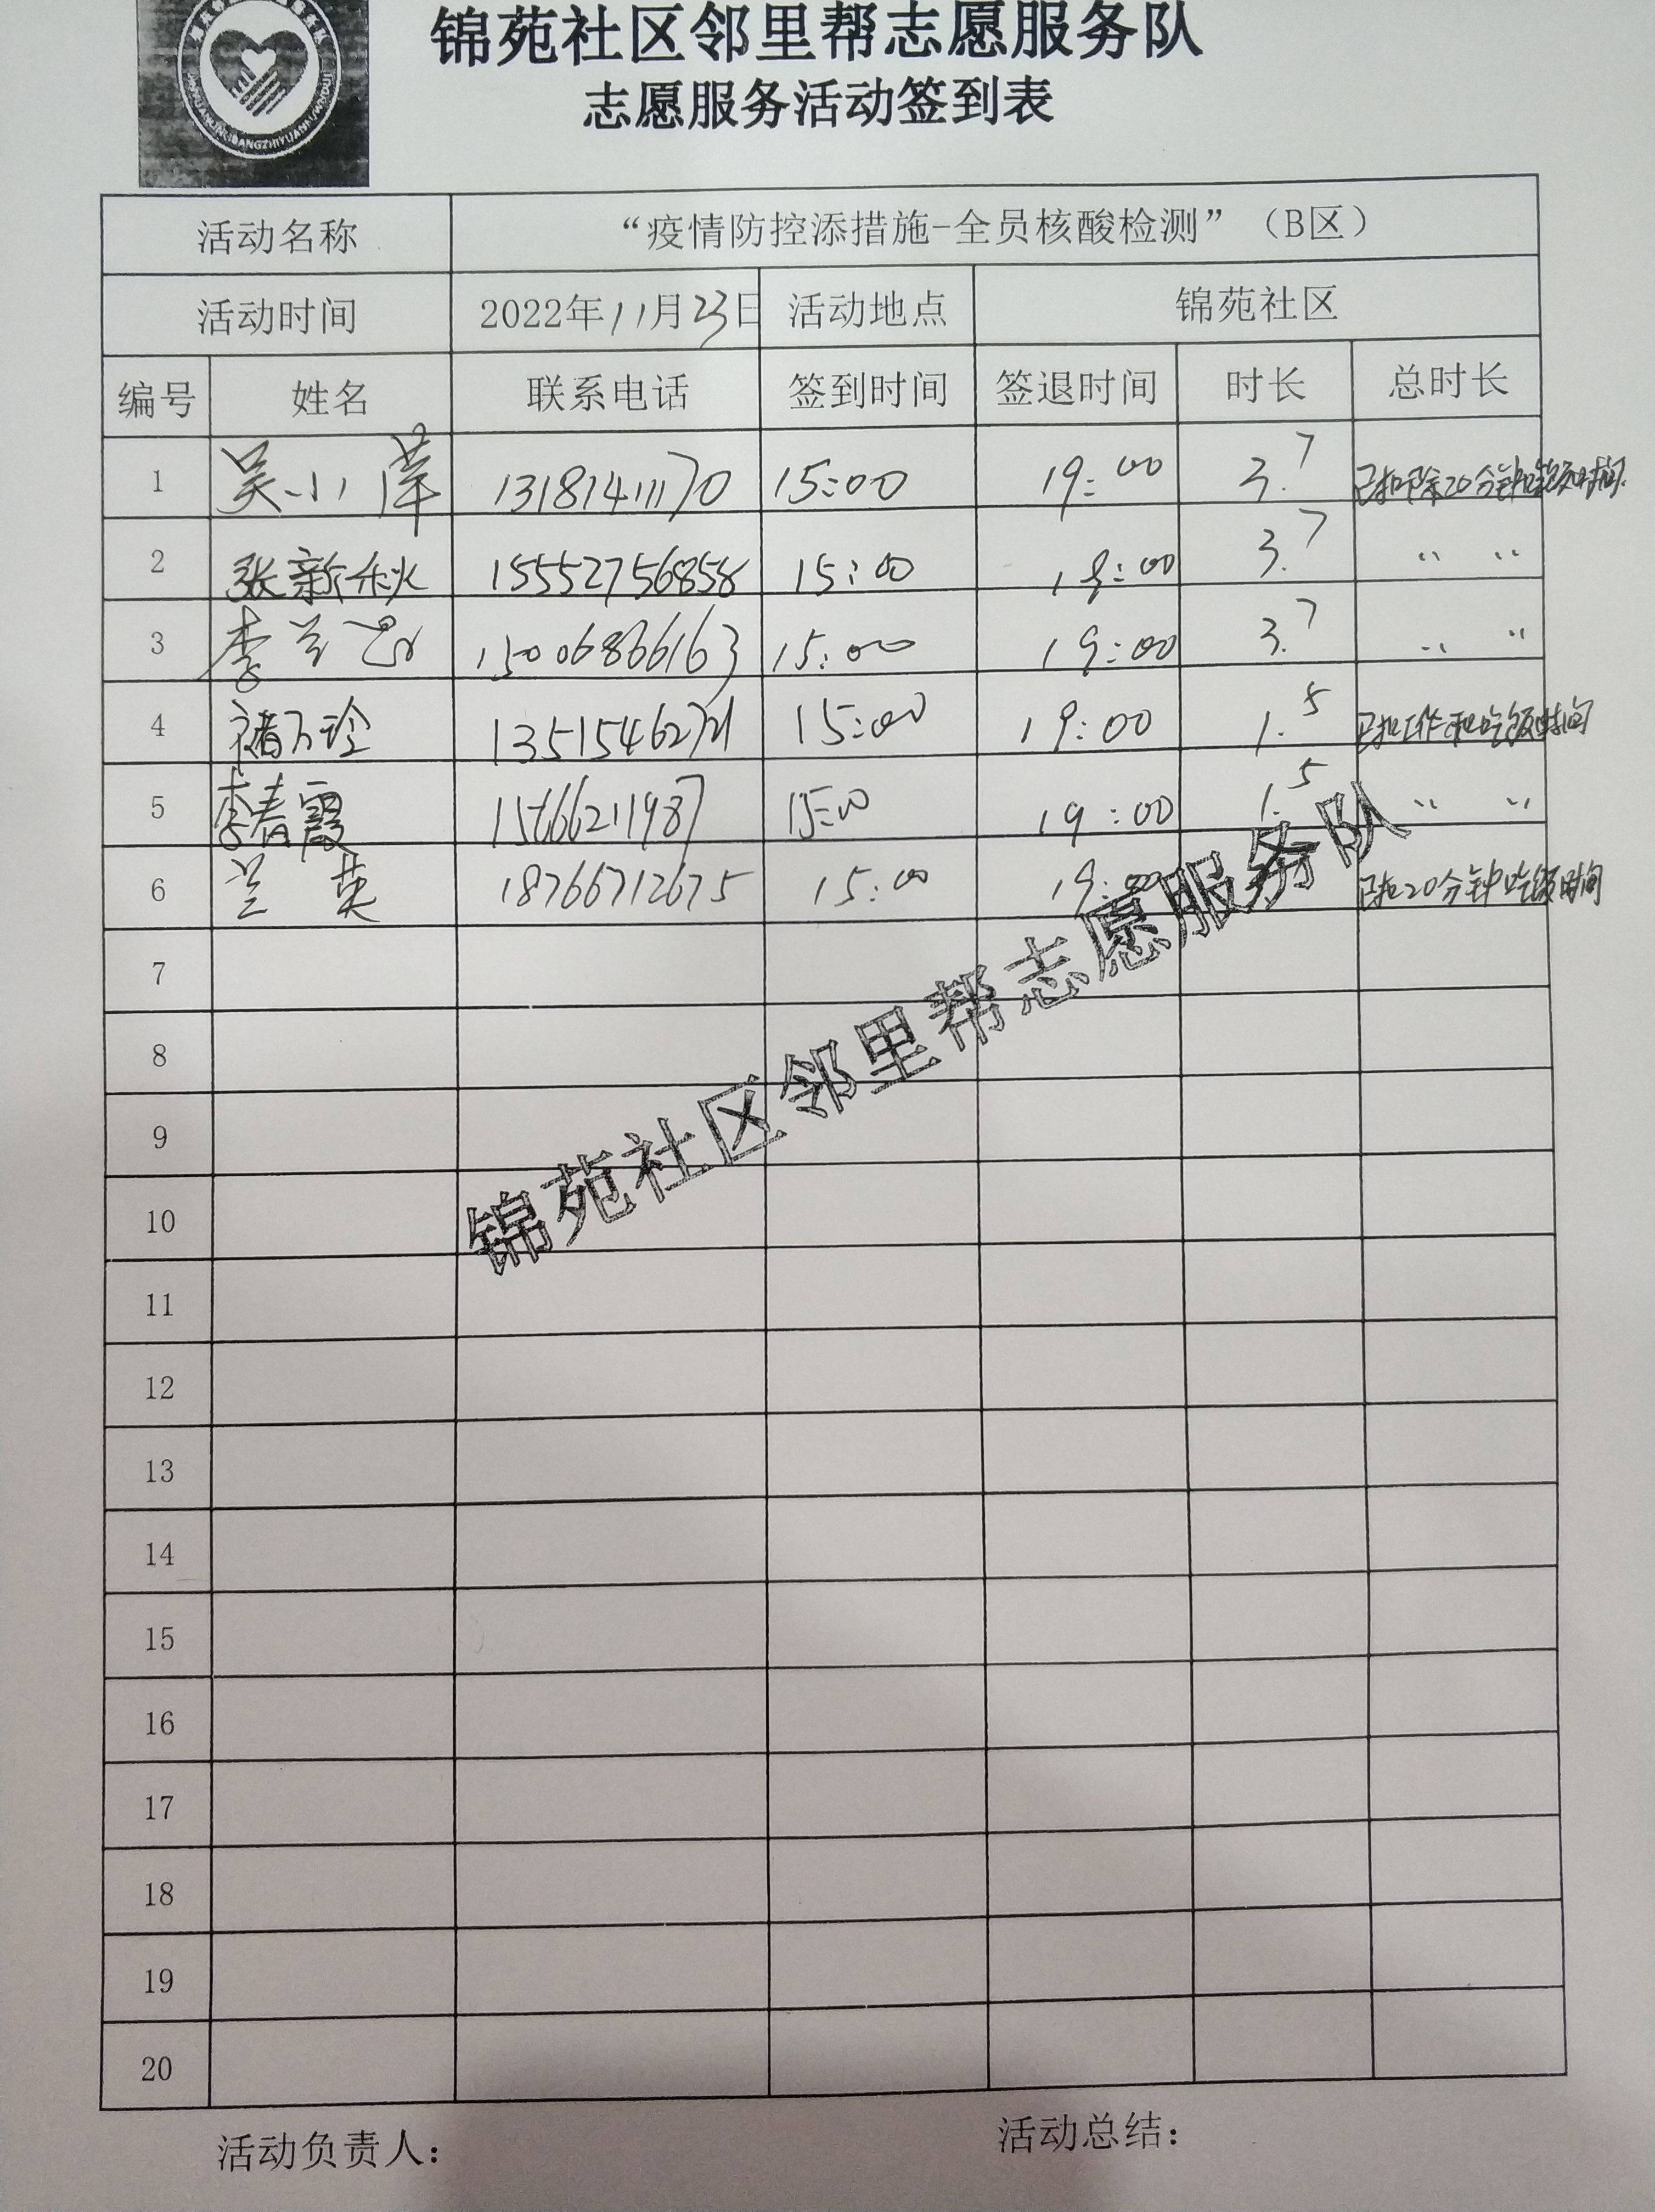 锦苑社区邻里帮志愿服务队
志愿服务活动签到表
活动名称 “疫情防控添措施-全员核酸检测”（B区）
活动时间 2022年11月23日 活动地点 锦苑社区
编号 姓名 联系电话 签到时间 签退时间 时长 总时长
1 吴小萍 13181411170 15:00 19:00 3.7 已扣除20分钟吃饭时间.
2 张新秋 15552756858 15:00 19:00 3.7 〃 〃
3 李兰 15006866163 15:00 19:00 3.7 〃 〃
4 褚万玲 13515462721 15:00 19:00 1.5 已扣工作和吃饭时间
5 李春霞 15666211987 15:00 19:00 1.5 〃 〃
6 兰英 18766712675 15:00 19:00 已扣20分钟吃饭时间
7
8
9
10
11
12
13
14
15
16
17
18
19
20
锦苑社区邻里帮志愿服务队
活动负责人： 活动总结：